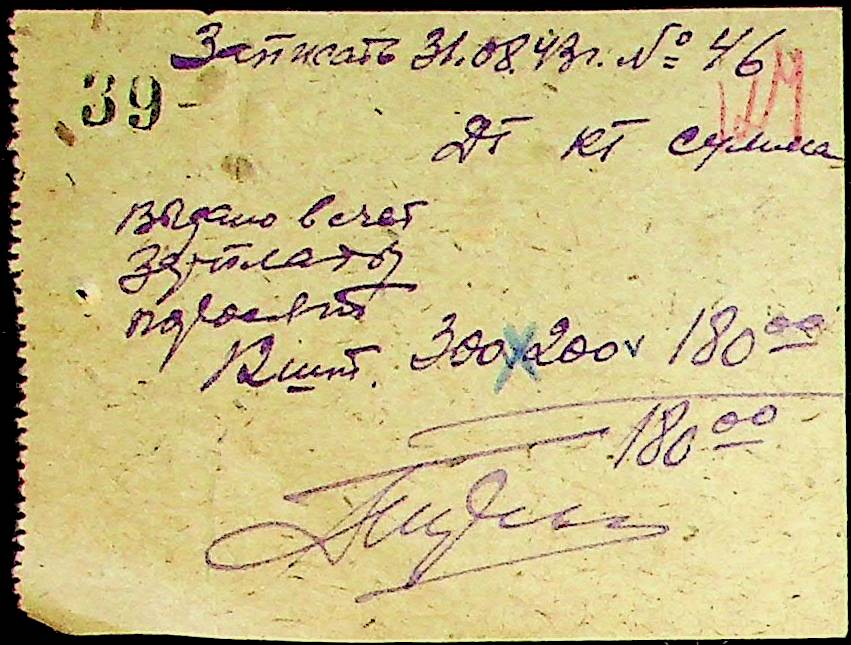 Записать 31.08.43г. № 46
39
Дт кт сумма
выдано в счет
зарплаты
поросят
12 шт. 300 200 180 00
180 00